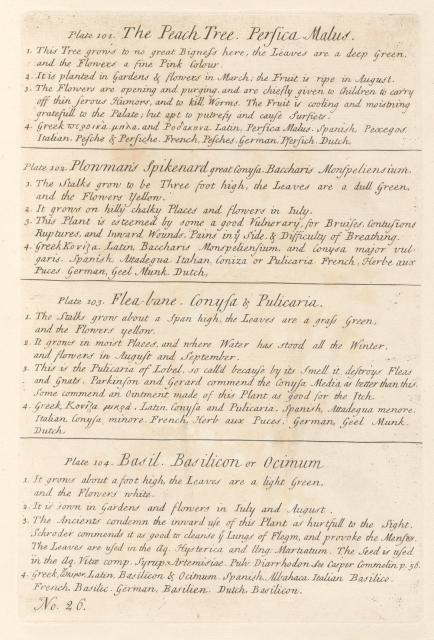 Plate 101. The Peach Tree. Persica Malus.
1. This Tree grows to no great Bigness here, the Leaves are a deep Green,
and the Flowers a fine Pink Colour.
2. It is planted in Gardens & flowers in March; the Fruit is ripe in August.
3. The Flowers are opening and purging, and are chiefly given to Children to carry
off thin serous Humors, and to kill Worms. The Fruit is cooling and moistning
gratefull to the Palate; but apt to putrefy and cause Surfiets.
4. Greek μηλα, and Latin, Persica Malus. Spanish, Pexegos.
Italian, Pesche & Persiche. French, Pesches. German, Pfersich. Dutch.
Plate 102. Plowman's Spikenard great Conysa. Baccharis Monspeliensium.
1. The Stalks grow to be Three foot high, the Leaves are a dull Green,
and the Flowers Yellow.
2. It grows on hilly chalky Places and flowers in Iuly.
3. This Plant is esteemed by some a good Vulnerary, for Bruises, Contusions
Ruptures, and Inward Wounds, Pains in ẏ Side, & Difficulty of Breathing.
4. Greek Κονῦζα. Latin, Baccharis Monspeliensium, and Conysa major vul-
garis. Spanish, Attadegua. Italian, Coniza or Pulicaria. French, Herbe aux
Puces. German, Geel Munk. Dutch,
Plate 103. Flea-bane. Conysa & Pulicaria.
1. The Stalks grow about a Span high, the Leaves are a grass Green,
and the Flowers yellow.
2. It grows in moist Places, and where Water has stood all the Winter,
and flowers in August and September.
3. This is the Pulicaria of Lobel, so call'd because by its Smell it destroys Fleas
and Gnats. Parkinson and Gerard commend the Conysa Media as better than this.
Some commend an Ointment made of this Plant as good for the Itch.
4. Greek, Κονῦζα μικρά. Latin, Conysa and Pulicaria. Spanish, Attadegua menore.
Italian, Conysa minore. French, Herb aux Puces. German, Geel Munk.
Dutch
Plate 104. Basil. Basilicon or Ocimum
1. It grows about a foot high, the Leaves are a light Green,
and the Flowers white.
2. It is sown in Gardens and flowers in Iuly and August.
3. The Ancients condemn the inward use of this Plant as hurtfull to the Sight.
Schroder commends it as good to cleanse ẏ Lungs of Flegm, and provoke the Menses.
The Leaves are used in the Aq. Hysterica and Ung. Martiatum. The Seed is used
in the Aq. Vitæ comp. Syrup. Artemisiæ. Pulv. Diarrhodon. See Casper Commolin p. 56.
4. Greek, Latin, Basilicon & Ocimum. Spanish, Albahaca. Italian Basilico.
French, Basilic. German, Basilien. Dutch, Basilicon.
No. 26.